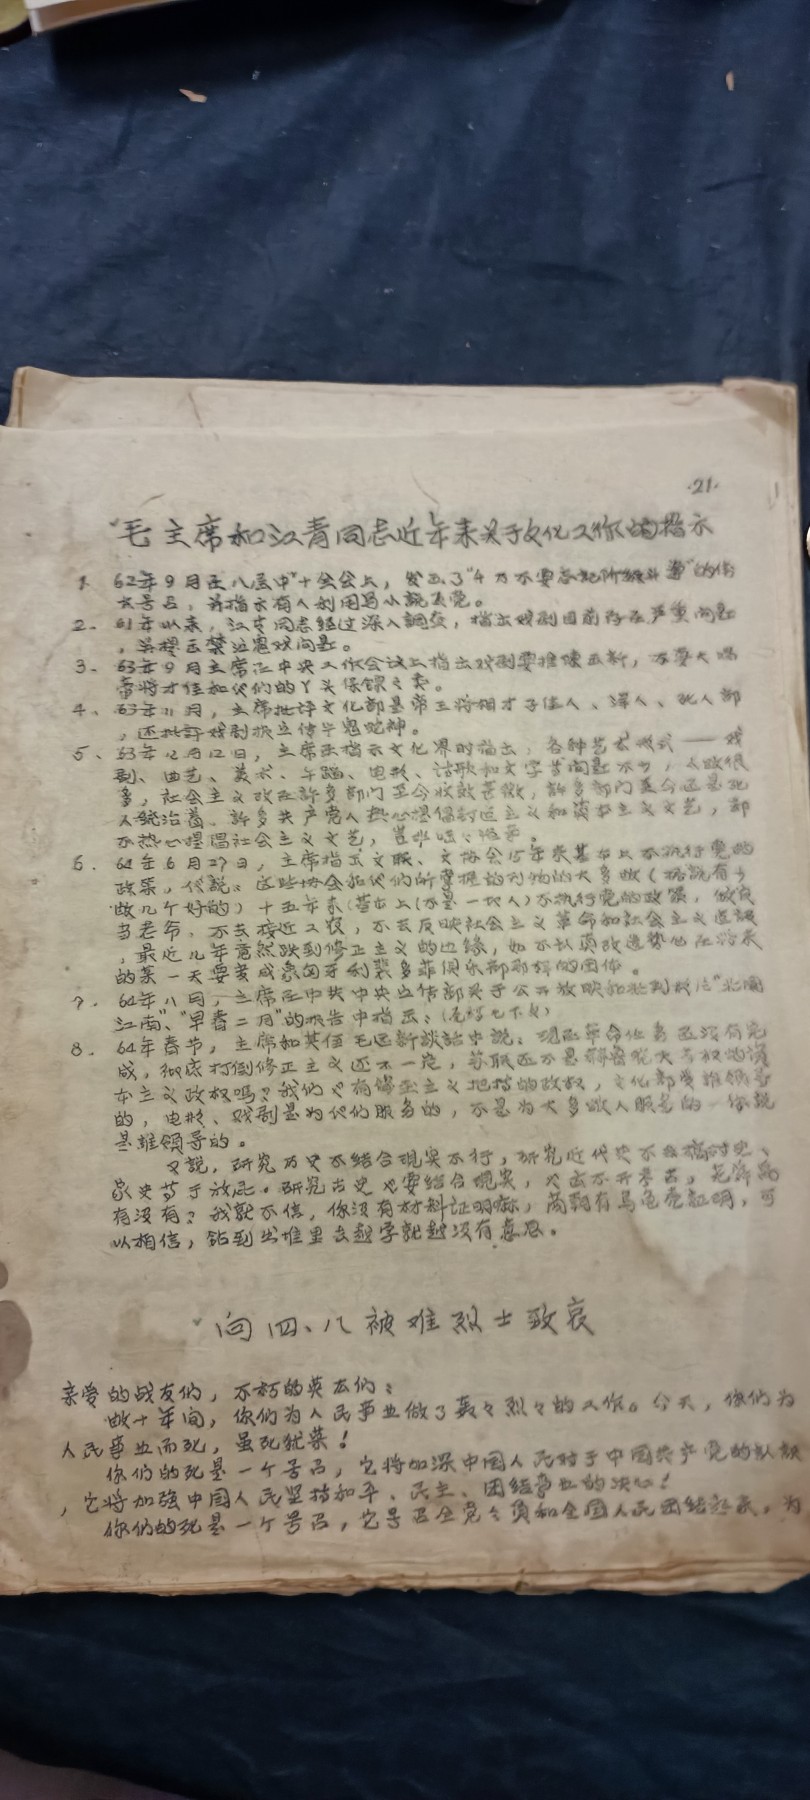 ·21·
毛主席和江青同志近年来关于文化工作的指示
1、62年9月在八届中十全会上，发出了“千万不要忘记阶级斗争”的伟
大号召，并指出有人利用写小说反党。
2、61年以来，江青同志经过深入調查，指出戏剧目前存在严重问题
，并提出禁演鬼戏问题。
3、63年9月主席在中央工作会议上指出戏剧要推陈出新，不要大唱
帝将才佳和他们的丫头保镖之类。
4、63年11月，主席批评文化部是帝王将相才子佳人、洋人、死人部
，还批评戏剧
5、63年12月12日，主席在指示文化界时指出：各种艺术形式——戏
剧、曲艺、美术、午蹈、电影、诗歌和文字等问题不少，人数很
多，社会主义改造許多部门至今收效甚微，許多部门至今还是死
人统治着。許多共产党人热心提倡封建主义和资本主义文艺，却
不热心提倡社会主义文艺，岂非咄々怪事。
6、64年6月27日，主席指出文联、文协会15年来基本上不执行党的
政策，〈說：这些协会和他们所掌握的刊物的大多数（据說有少
数几个好的）十五年来（基本上（不是一切人）不执行党的政策，做官
当老爷，不去接近工农，不去反映社会主义革命和社会主义建设
，最近几年竟然跌到修正主义的边缘，如不认真改造势必在将来
的某一天要变成象匈牙利裴多菲俱乐部那样的团体。
7、64年八月，主席在中共中央宣传部关于公开放映和批判影片“北国
江南”、“早春二月”的报告中指出：
8、64年春节，主席和其侄毛远新談話中说：现在革命任务还没有完
成，彻底打倒修正主义还不一定，苏联还不是
本主义政权吗？我们也有修正主义把持的政权，文化部受谁领导
的，电影、戏剧是为他们服务的，不是为大多数人服务的，你說
是誰领导的。
又説，研究历史不结合现实不行，研究近代史不去搞村史、
家史等于放屁。研究古史也要结合现实，也离不开考古，尧舜禹
有没有？我就不信，你没有材料证明嘛，商朝有乌龟壳証明，可
以相信，钻到书堆里去越学就越没有意思。
向四、八被难烈士致哀
亲爱的战友们，不朽的英雄们：
数十年间，你们为人民事业做了轰々烈々的工作。今天，你们为
人民事业而死，虽死犹荣！
你们的死是一个号召，它将加深中国人民对于中国共产党的认識
，它将加强中国人民坚持和平、民主、团结事业的决心！
你们的死是一个号召，它号召全党々员和全国人民团结起来，为